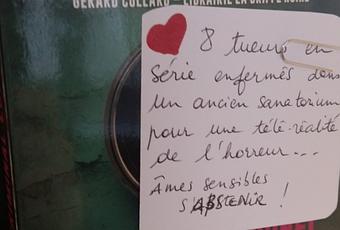 GÉRARD COLLARD – LIBRAIRIE LA GRIFFE NOIRE
8 tueurs en
série enfermés dans
un ancien sanatorium
pour une télé-réalité
de l'horreur...
Âmes sensibles
s'ABSTENIR !